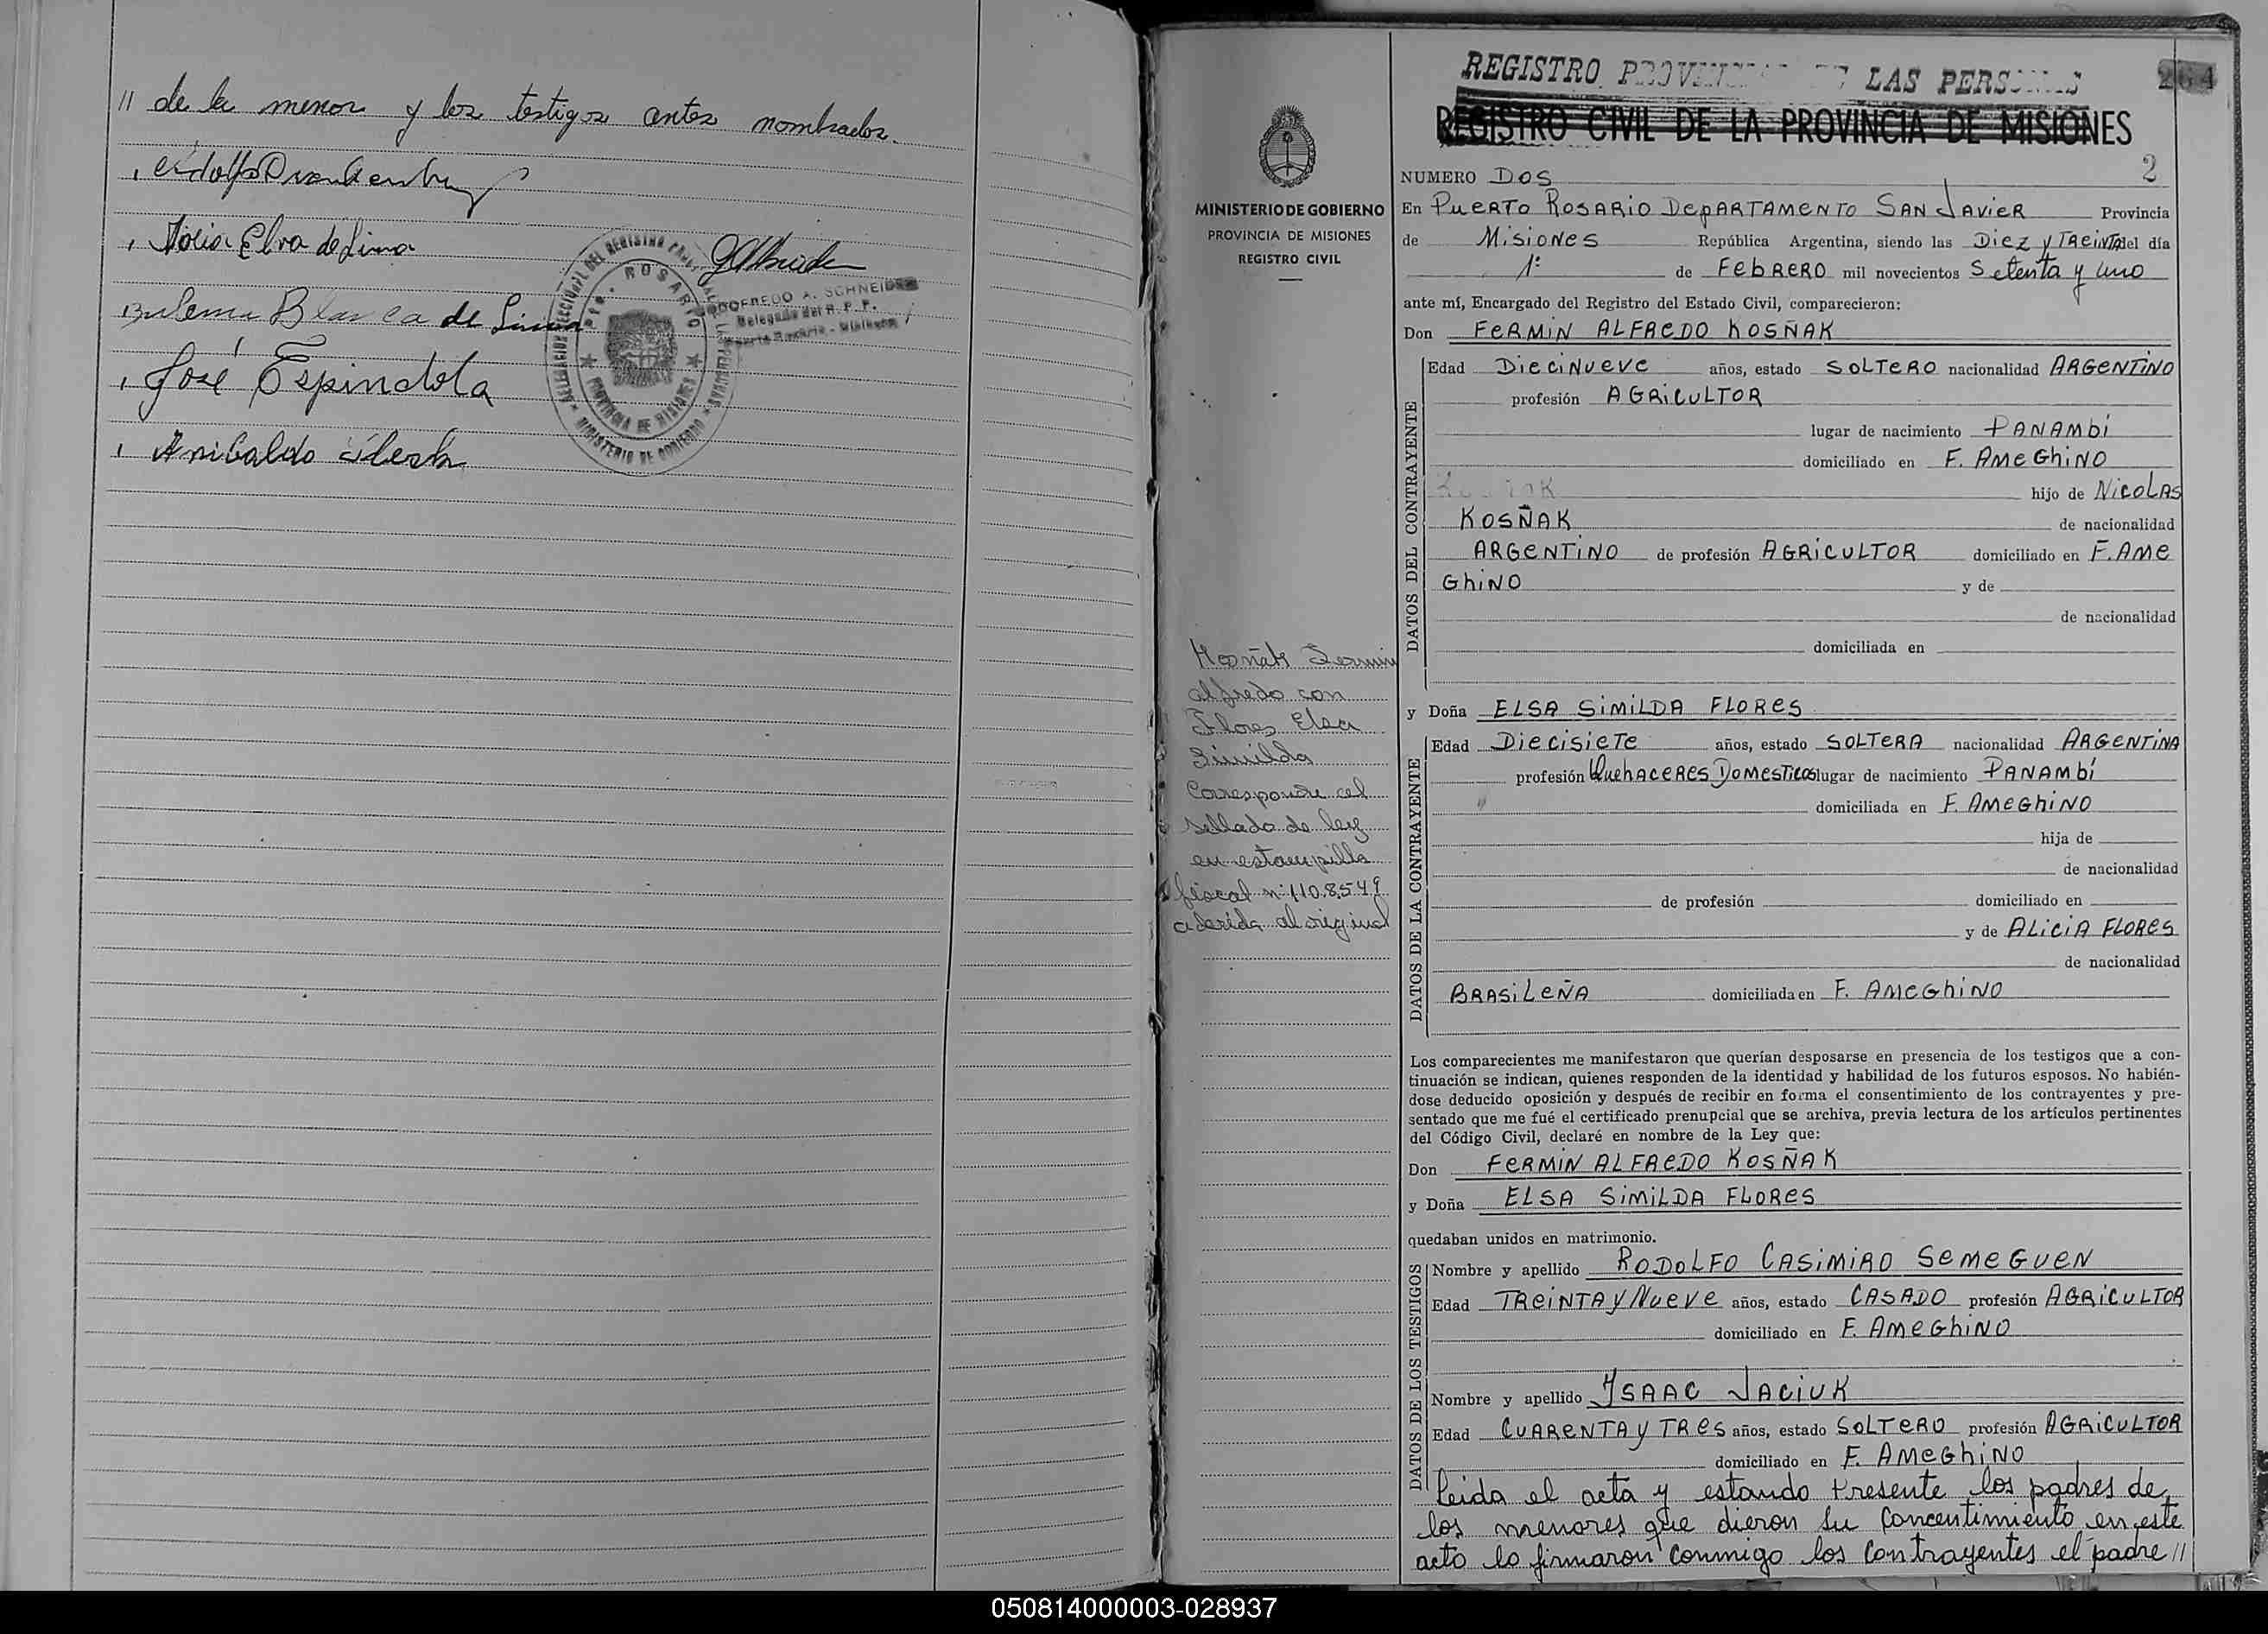 // de la menor y los testigos antes nombrados.
Nolia Elva de Lima
Zulema Blanca de Lima
José Espindola
Anibaldo
DELEGACION SECCIONAL DEL REGISTRO PROVINCIAL DE LAS PERSONAS
Pto. ROSARIO
PROVINCIA DE MISIONES
MINISTERIO DE GOBIERNO
GODOFREDO A. SCHNEIDER
Delegado del R. P. P.
Puerto Rosario - Misiones
MINISTERIO DE GOBIERNO
PROVINCIA DE MISIONES
REGISTRO CIVIL
Kosñak Fermin
Alfredo con
Flores Elsa
Similda
Corresponde al
sellado de ley
en estampilla
fiscal nº 1108549
aderida al original
REGISTRO PROVINCIAL DE LAS PERSONAS 264
REGISTRO CIVIL DE LA PROVINCIA DE MISIONES
2
NUMERO DOS
En PUERTO ROSARIO DEPARTAMENTO SAN JAVIER Provincia
de MISIONES República Argentina, siendo las DIEZ Y TREINTA del día
1º de FEBRERO mil novecientos Setenta y uno
ante mí, Encargado del Registro del Estado Civil, comparecieron:
Don FERMIN ALFREDO KOSÑAK
DATOS DEL CONTRAYENTE
Edad DIECINUEVE años, estado SOLTERO nacionalidad ARGENTINO
profesión AGRICULTOR
lugar de nacimiento PANAMBÍ
domiciliado en F. AMEGHINO
hijo de NICOLAS
KOSÑAK de nacionalidad
ARGENTINO de profesión AGRICULTOR domiciliado en F. AME
GHINO y de
de nacionalidad
domiciliada en
y Doña ELSA SIMILDA FLORES
DATOS DE LA CONTRAYENTE
Edad DIECISIETE años, estado SOLTERA nacionalidad ARGENTINA
profesión QUEHACERES DOMESTICOS lugar de nacimiento PANAMBÍ
domiciliada en F. AMEGHINO
hija de
de nacionalidad
de profesión domiciliado en
y de ALICIA FLORES
de nacionalidad
BRASILEÑA domiciliada en F. AMEGHINO
Los comparecientes me manifestaron que querían desposarse en presencia de los testigos que a con-
tinuación se indican, quienes responden de la identidad y habilidad de los futuros esposos. No habién-
dose deducido oposición y después de recibir en forma el consentimiento de los contrayentes y pre-
sentado que me fué el certificado prenupcial que se archiva, previa lectura de los artículos pertinentes
del Código Civil, declaré en nombre de la Ley que:
Don FERMIN ALFREDO KOSÑAK
y Doña ELSA SIMILDA FLORES
quedaban unidos en matrimonio.
DATOS DE LOS TESTIGOS
Nombre y apellido RODOLFO CASIMIRO SEMEGUEN
Edad TREINTA Y NUEVE años, estado CASADO profesión AGRICULTOR
domiciliado en F. AMEGHINO
Nombre y apellido YSAAC JACIUK
Edad CUARENTA Y TRES años, estado SOLTERO profesión AGRICULTOR
domiciliado en F. AMEGHINO
Leida el acta y estando presente los padres de
los menores que dieron su concentimiento en este
acto lo firmaron conmigo los contrayentes el padre //
050814000003-028937